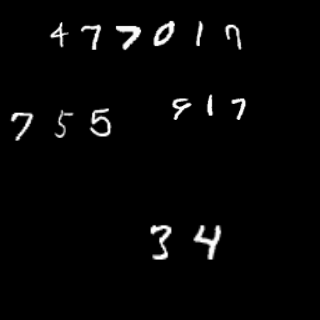 477017
755 817
34